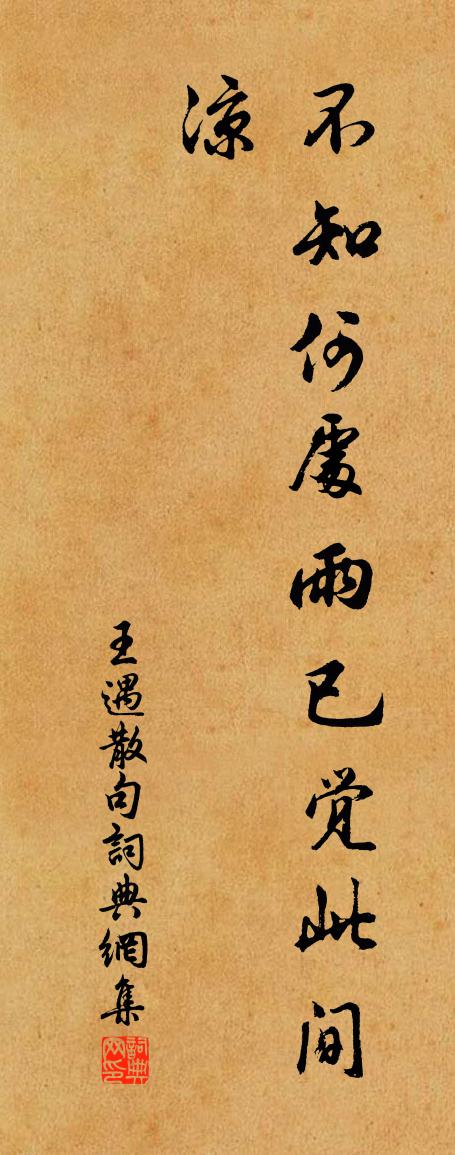 不知何處雨已覺此间
涼
王遇散句詞典網集
詞典网印